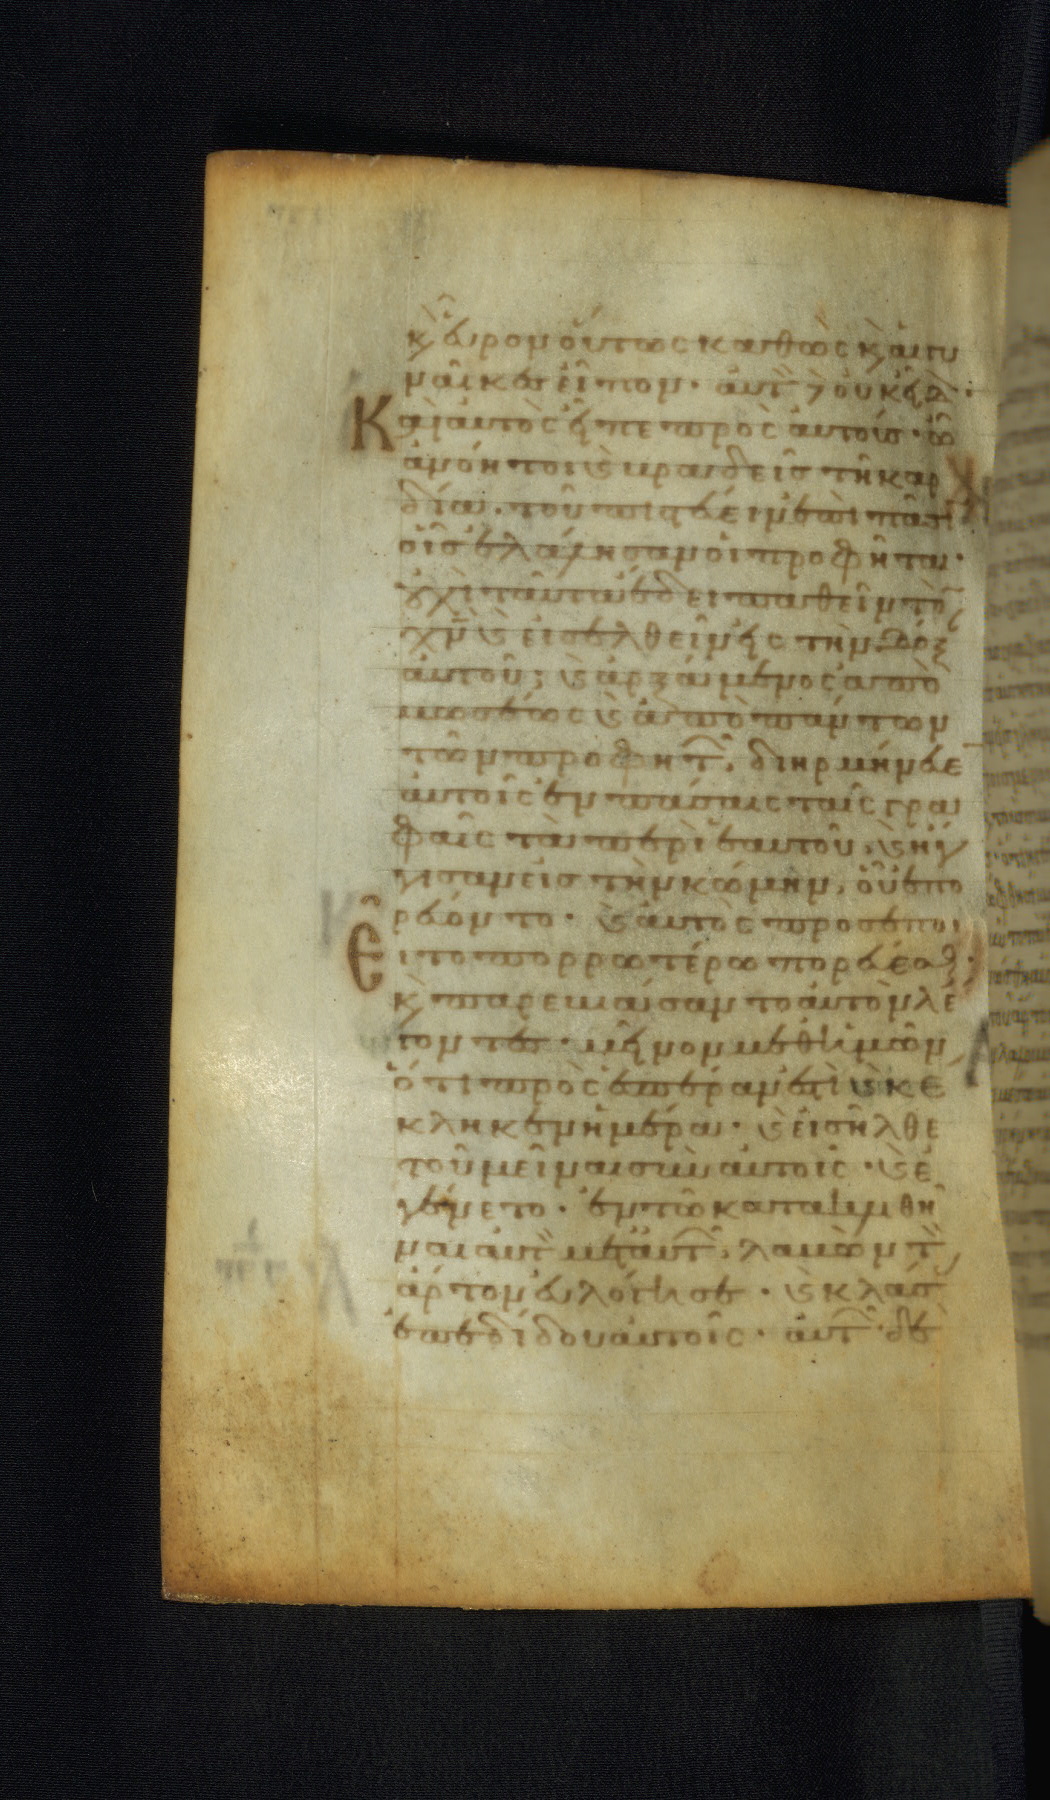 κ εὗρον οὕτως καθὼς κ αἱ γυ
ναῖκες εἶπον· αὐτ δ οὐκ εἶδ·
Καὶ αὐτὸς εἶπε πρὸς αὐτούς· ὦ
ἀνόητοι κ βραδεῖς τῆ καρ
δία· τοῦ πιστεύειν ἐπὶ πᾶσι
οἷς ἐλάλησαν οἱ προφῆται·
οὐχὶ ταῦτα ἔδει παθεῖν τὸ
χν κ εἰσελθεῖν εἰς τὴν δόξ
αὐτοῦ; κ ἀρξάμενος ἀπὸ
μωσέως κ ἀπὸ πάντων
τῶν προφητ, διηρμήνευε
αὐτοῖς ἐν πάσαις ταῖς γρα
φαῖς τὰ περὶ ἑαυτοῦ, κ ἤγ
γισαν εἰς τὴν κώμην, οὗ ἐπο
ρεύοντο· κ αὐτὸς προσεποι
εῖτο πορρωτέρω πορεύεσθ·
κ παρεβιάσαντο αὐτὸν λέ
γοντες· μεῖνον μεθ ἡμῶν
ὅτι πρὸς ἑσπέραν ἐστὶ κ κε
κληκεν ἡ ἡμέρα· κ εἰσῆλθε
τοῦ μεῖναι σὺν αὐτοῖς· κ ἐ
γένετο· ἐν τῶ κατακλιθῆ
ναι αὐτ μετ αὐτ, λαβὼν τ
ἄρτον εὐλόγησε· κ κλάσ
ἐπεδίδου αὐτοῖς· αὐτ δε